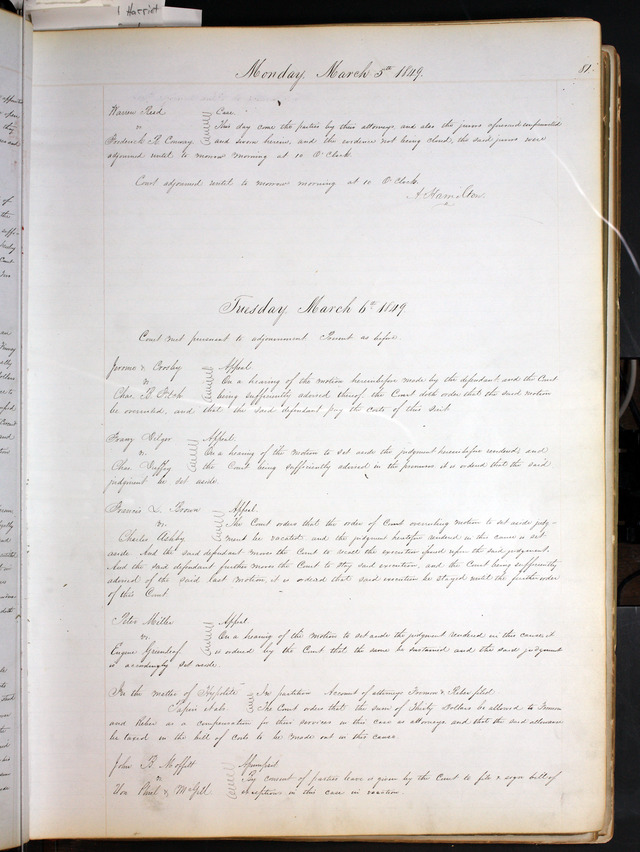 Harriet
Monday, March 5th 1849.
81.
Warren Reed Case
vs This day come the parties by their attorneys and also the jurors aforesaid empanneled
Frederick R. Conway and sworn herein, and the evidence not being closed, the said jurors were
adjourned until to morrow morning at 10 O'Clock.
Court adjourned until to morrow morning at 10 O'Clock.
A. Hamilton
Tuesday March 6th 1849.
Court met pursuant to adjournment Present as before.
Jerome & Crosby Appeal
vs On a hearing of the motion heretofore made by the defendant and the Court
Chas. B. being sufficiently advised thereof, the Court doth order that the said motion
be overruled, and that the said defendant pay the costs of this suit.
Franz Appeal.
vs. On a hearing of the motion to set aside the judgment heretofore rendered, and
Chas. Duffey the Court being sufficiently advised in the premises it is ordered that the said
judgment be set aside.
Francis L. Brown Appeal.
vs. The Court orders that the order of Court overruling motion to set aside judg-
Charles Ashby ment be vacated and the judgment heretofore rendered in this cause is set
aside. And the said defendant moves the Court to recall the execution issued upon the said judgment.
And the said defendant further moves the Court to stay said execution, and the Court being sufficiently
advised of the said last motion, it is ordered that said execution be stayed until the further order
of this Court.
Peter Miller Appeal
vs. On a hearing of the motion to set aside the judgment rendered in this cause, it
Eugene Greenleaf is ordered by the Court that the same be sustained and the said judgment
is accordingly set aside.
In the matter of Hypolite In partition Account of attorneys filed.
Papin The Court orders that the sum of Thirty Dollars be allowed to
and as a compensation for their services in this case as attorneys and that the said allowance
be taxed in the bill of costs to be made out in this cause.
John B. Moffitt Assumpsit
vs By consent of parties leave is given by the Court to file & sign bill of
McGill exceptions in this case in vacation.